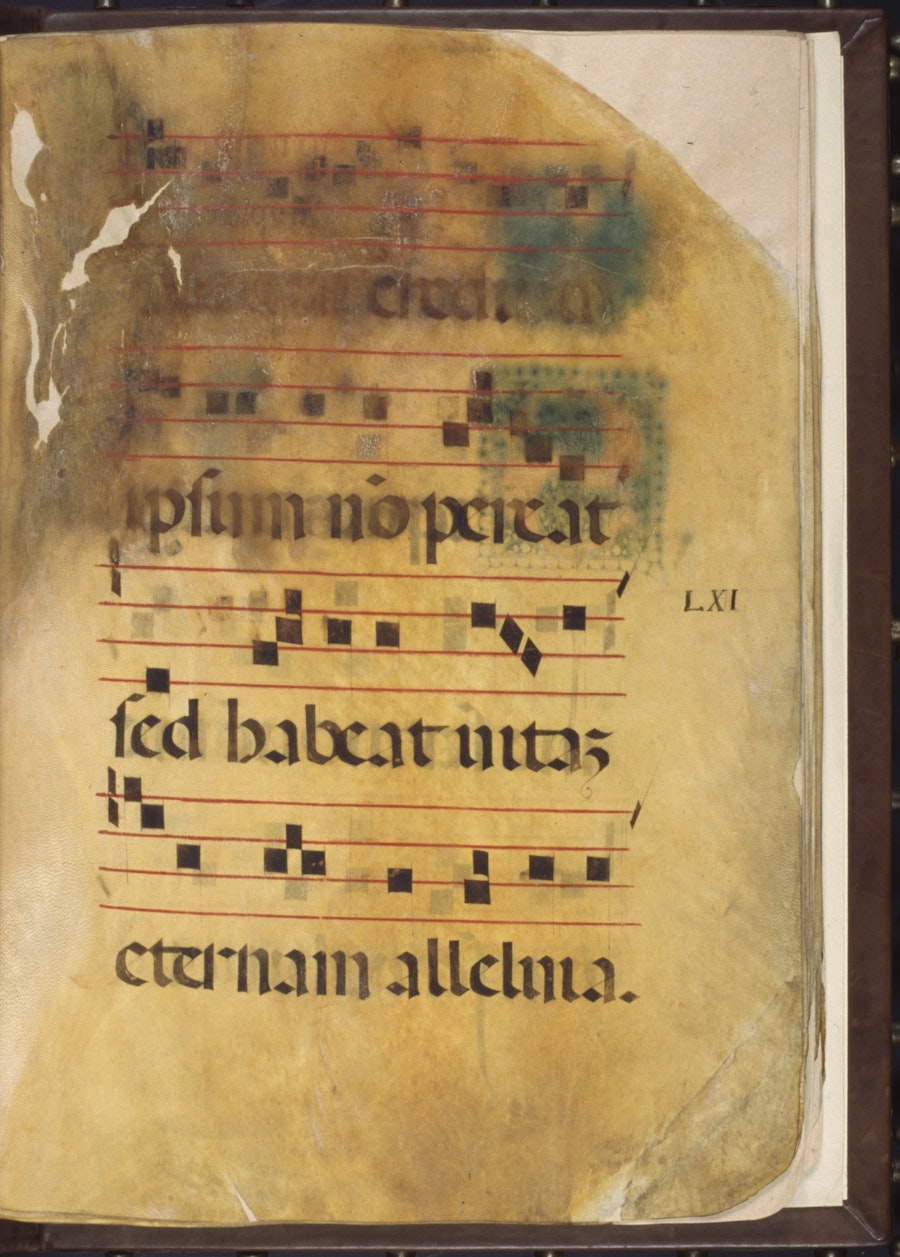 credit in
ipsum nō pereat
LXI
sed habeat uitaʒ
eternam alleluia.